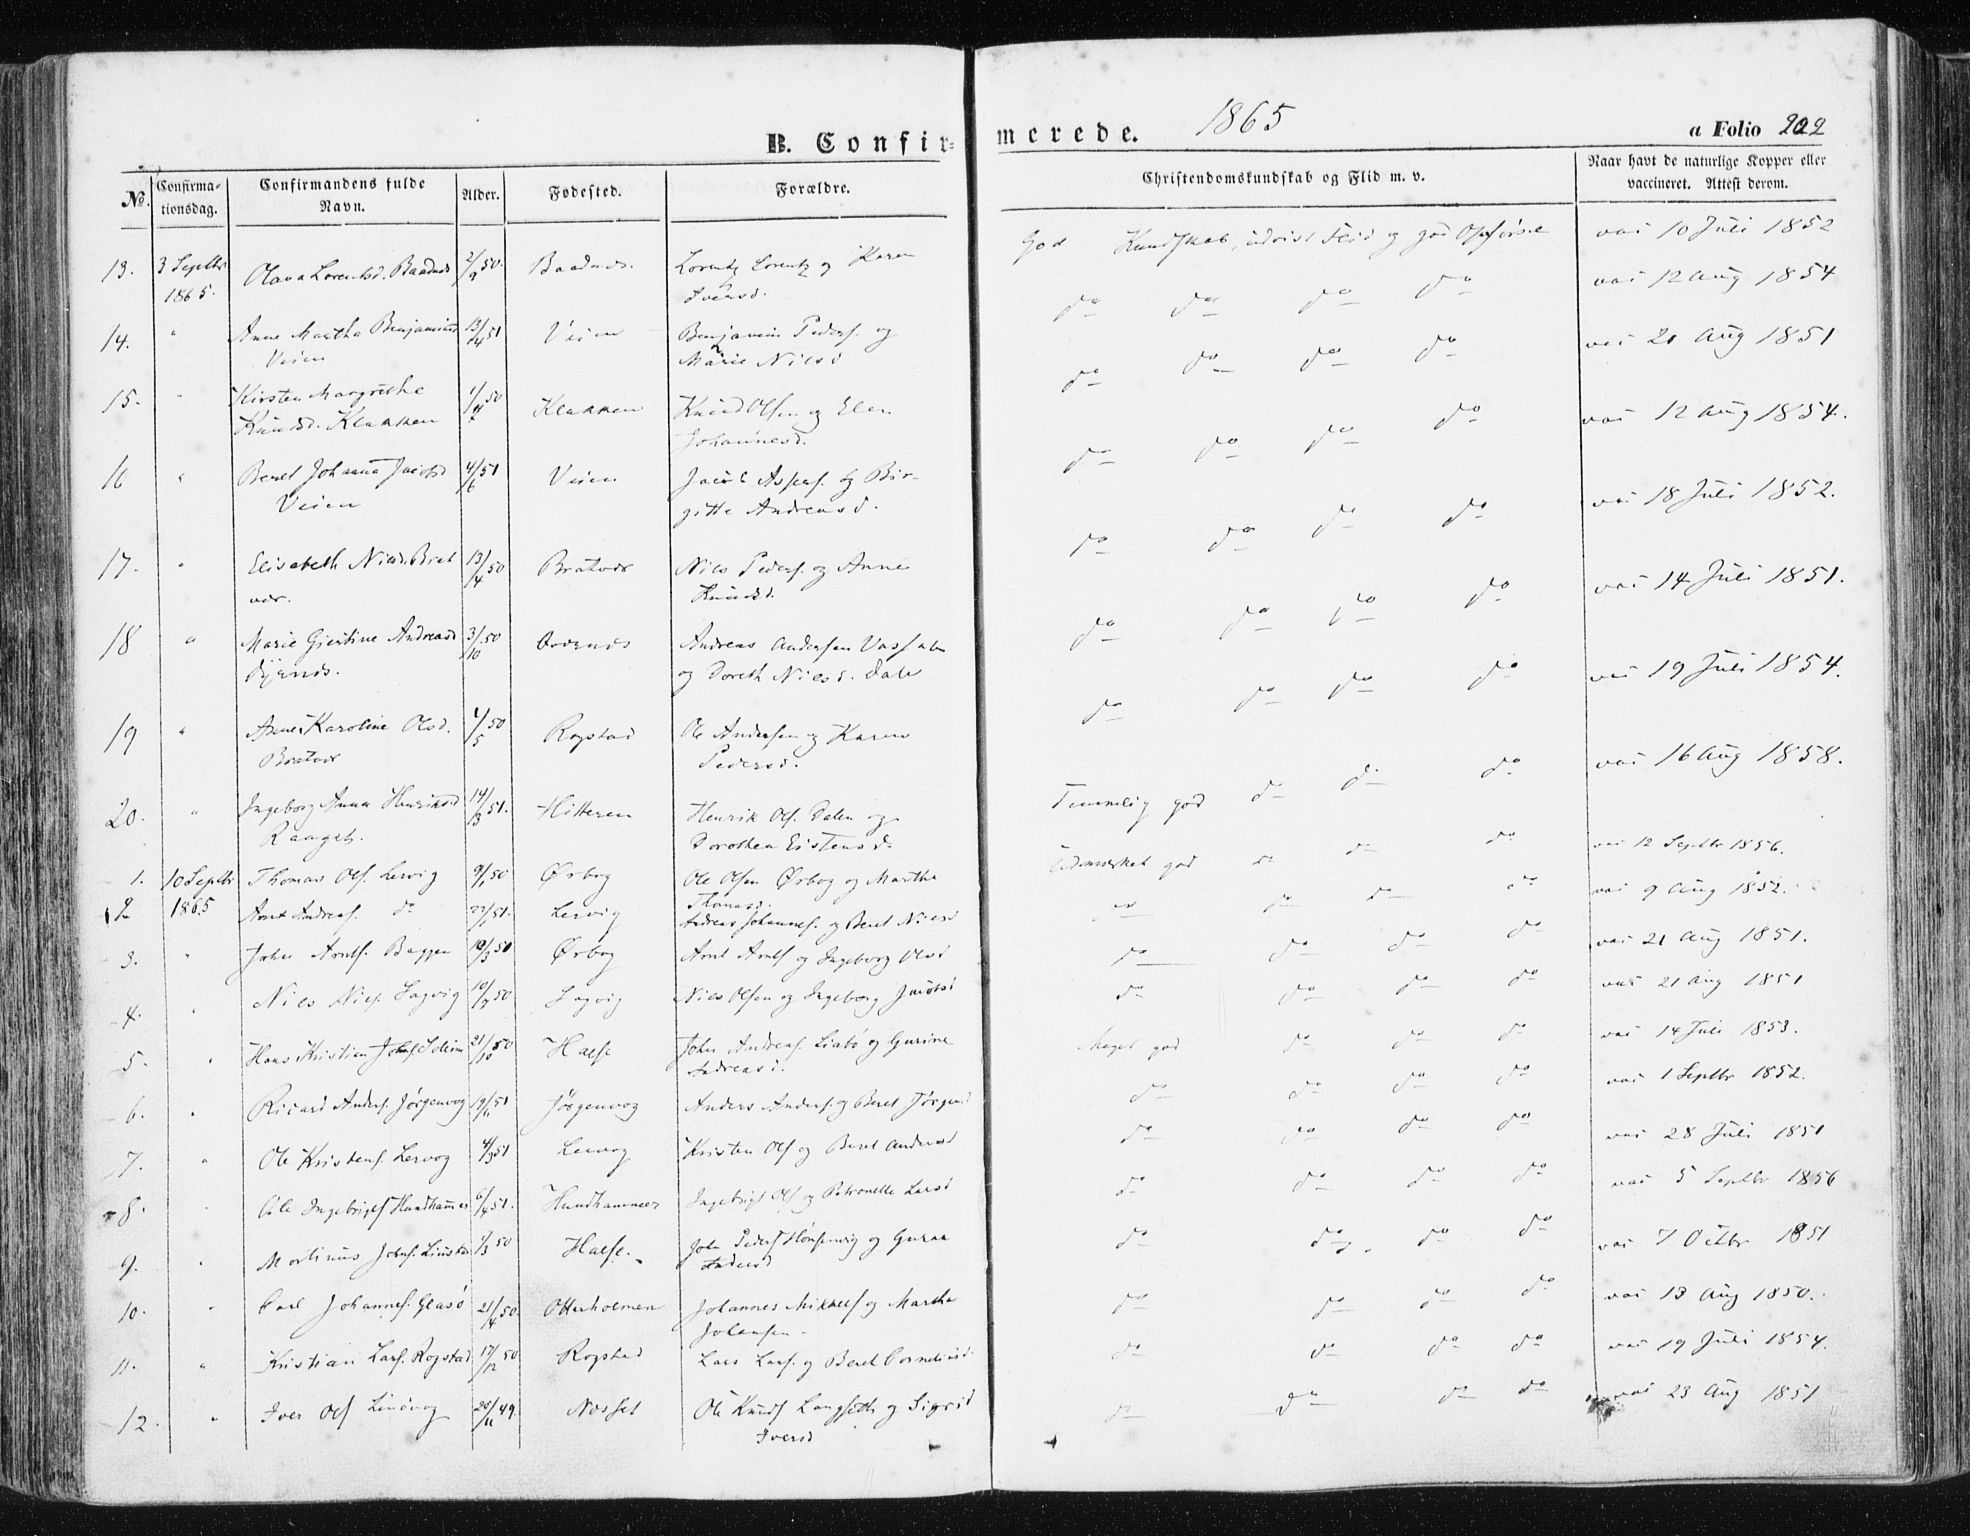 B. Confirmerede. 1865 a Folio 202
No. Confirmationsdag. Confirmandens fulde Navn. Alder. Fødested. Forældre. Christendomskundskab og Flid m. v. Naar havt de naturlige Kopper eller vaccineret. Attest derom.
13. 3 Septbr 1865. Olava Lorentsd. Baadnes 2/9 50. Baadnes. Lorentz Lorentz og Karen Iversd. God Kundskab, udvist Flid og god Opførsel vac 10 Juli 1852
14. " Anne Martha Benjaminsd Veien 13/4 51 Veien Benjamin Peders. og Marie Nilsd do do do do vac 12 Aug 1854
15. " Kirsten Margrethe Knudsd. Klakken 50 Klakken Knud Olsen og Elen Johannesd. do do do do vac 21 Aug 1851
16 " Beret Johanna Jacobsd Veien 4/6 51 Veien Jacob Aspas. og Birgitte Andreasd. do do do do vac 12 Aug 1854.
17. " Elisabeth Nilsd. Bratvær. 13/4 50 Bratvær Nils Peders. og Anne Knudsd. do do do do vac 18 Juli 1852.
18 " Marie Gjertine Andreasd 3/10 50 Andreas Andersen og Doreth Nilsd. Dale do do do do vac 14 Juli 1851.
19 " Anne Karoline Olsd. Bratvær 1/5 50 Rogstad Ole Andersen og Karen Pedersd. do do do do vac 19 Juli 1854.
20. " Ingeborg Anna Henriksd 14/3 51. Hitteren Henrik Ols. Dalen og Dorothea Eistensd. Temmelig god do do do vac 16 Aug 1858.
1. 10 Septbr 1865 Thomas Ols. Lervig 9/1 50 Ørbog Ole Olsen Ørbog og Martha Thomasd. Udmærket god do do do vac 12 Septbr 1856.
2 Arnt Andreas. do 22/1 51. Lervig Andreas Johannes. og Beret Nilsd do do do do vac 9 Aug 1852.
3. " John Arnts. Baggen 19/3 50 Ørbog Arnt Arnts og Ingeborg Olsd do do do do vac 21 Aug 1851.
4. " Nils Nils. Hagvig 10/7 50 Hagvig Nils Olsen og Ingeborg Jacobsd do do do do vac 21 Aug 1851
5. " Hans Kristian Johns. 21/10 50 Halse John Andreas. Liabø og Gurine Andreasd. Meget god do do do vac 14 Juli 1853.
6. " Ricard Anders. Jørgenvog 19/11 51 Jørgenvog Anders Anders. og Beret Jørgensd do do do do vac 1 Septbr 1852.
7. " Ole Kristens. Lervog 4/3 51 Lervog Kristen Ols og Beret Andersd do do do do vac 28 Juli 1851
8. " Ole Ingebrigts Hundhammer 6/4 51. Hundhammer Ingebrigt Ols og Petronelle Larsd do do do do vac 5 Septbr 1856
9. " Martinus Johns. 7/3 50 Halse. John Peders og Guraa Andersd do do do do vac 7 Octbr 1851
10. " Carl Johannes. Glasø 21/4 50. Otterholmen Johannes Mikkels og Martha Johansen. do do do do vac 13 Aug 1850.
11. " Kristian Lars. Rogstad 17/12 50 Rogstad Lars Lars. og Beret Corneliusd. do do do do vac 19 Juli 1854.
12. " Iver Ols Lindvog 20/11 49. Nosset Ole Knuds Langseth og Sigrid Iversd do do do do vac 23 Aug 1851